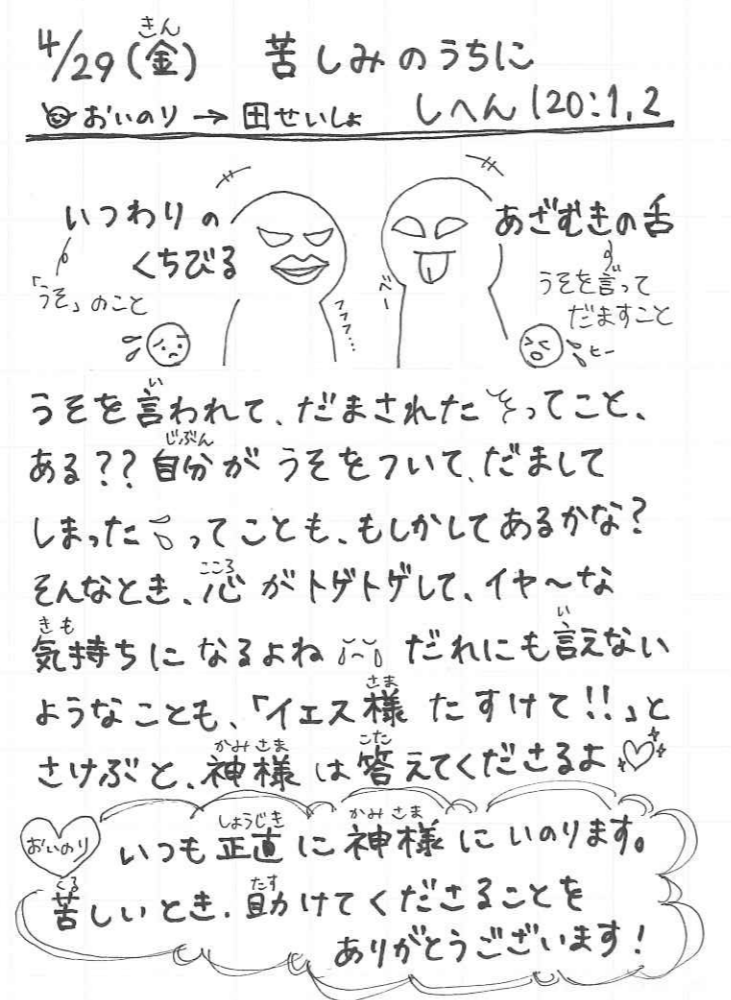 4/29(金) 苦しみのうちに
きん
おいのり→せいしょ しへん120:1,2
いつわりの
くちびる
「うそ」のこと
フフフ…
べー
あざむきの舌
うそを言って
だますこと
ヒー
うそを言われて、だまされたってこと、
い
ある??自分がうそをついて、だまして
じぶん
しまったってことも、もしかしてあるかな?
そんなとき、心がトゲトゲして、イヤ〜な
こころ
気持ちになるよね だれにも言えない
きも い
ようなことも、「イエス様たすけて!!」と
さま
さけぶと、神様は答えてくださるよ♡
かみさま こた
おいのり
いつも正直に神様にいのります。
しょうじき かみさま
苦しいとき、助けてくださることを
くる たす
ありがとうございます!